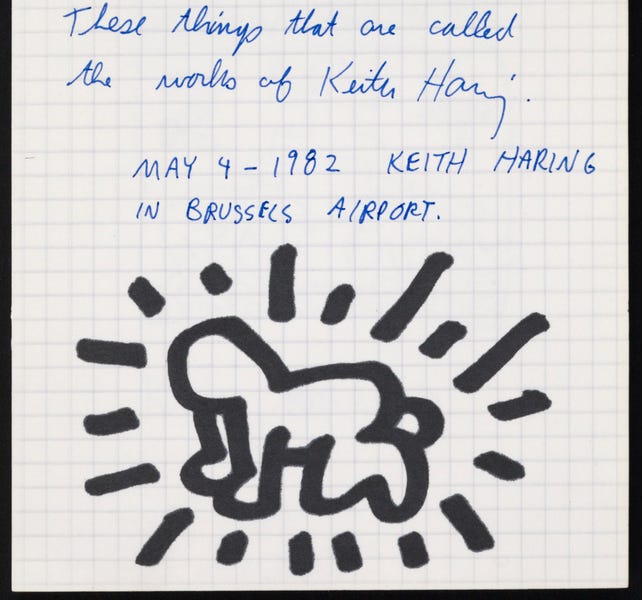 These things that are called
the works of Keith Haring.
MAY 4 - 1982 KEITH HARING
IN BRUSSELS AIRPORT.